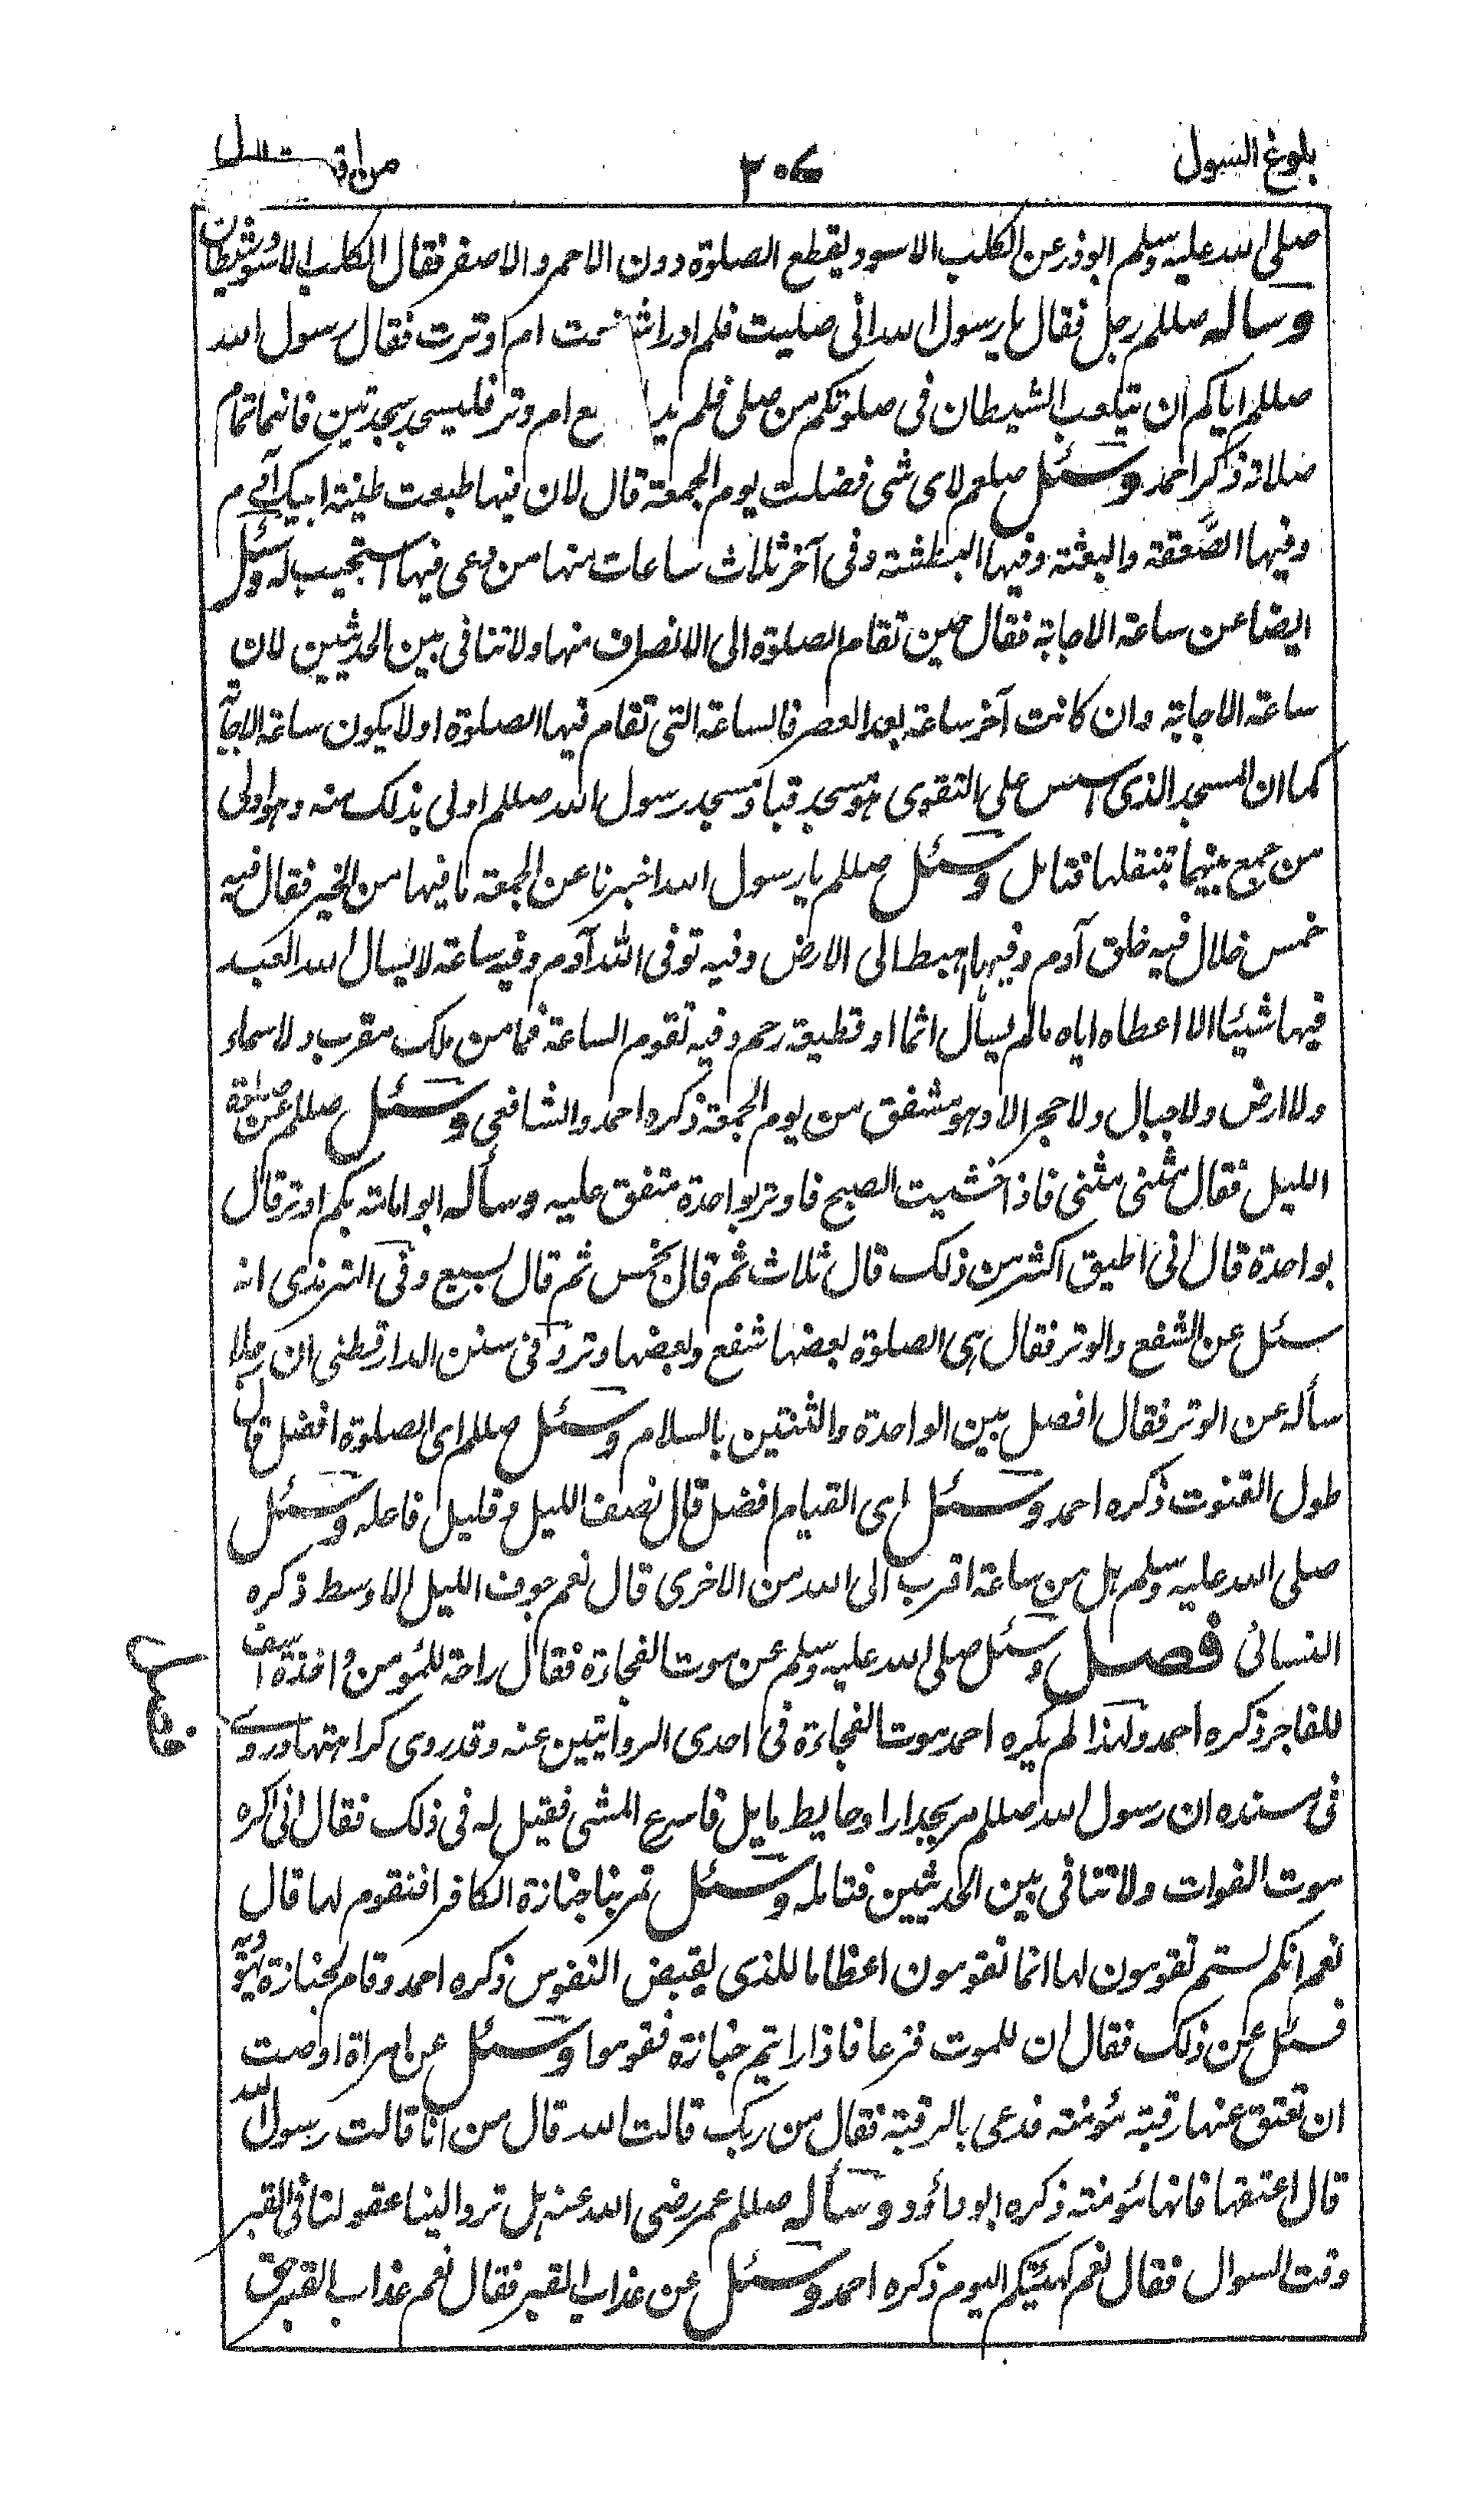 بلوغ السول
من اق
صلى الله عليه وسلم ابوذر عن الكلب الاسود يقطع الصلوة دون الاحمر والاصفر فقال الكلب الاسود شيطان
وساله صللم رجل فقال يا رسول الله انى صليت فلم ادر اشفعت ام اوترت فقال رسول الله
صللم اياكم ان يتلعب الشيطان فى صلوتكم من صلى فلم يد ع ام وتر فليسجد سجدتين فانهما تمام
صلاته ذكر احمد وسئل صلعم لاى شى فضلت يوم الجمعة قال لان فيها طبعت طينة ابيك آدم
وفيها الصَّعقة والبعثة وفيها البطشة وفى آخر ثلاث ساعات منها من دعى فيها استجيب له وسئل
ايضا عن ساعة الاجابة فقال حين تقام الصلوة الى الانصراف منها ولا تنافى بين الحديثين لان
ساعة الاجابة وان كانت آخر ساعة بعد العصر فالساعة التى تقام فيها الصلوة اولا يكون ساعة الاجابة
كما ان المسجد الذى اسس على التقوى هو مسجد قبا ومسجد رسول الله صللم اولى بذلك منه وهو اولى
من جمع بينهما بتنقلها فتامل وسئل صللم يا رسول الله اخبرنا عن الجمعة ما فيها من الخير فقال فيه
خمس خلال فيه خلق آدم وفيها اهبط الى الارض وفيه توفى الله آدم وفيه ساعة لا يسال الله العبد
فيها شيئا الا اعطاه اياه مالم يسأل اثما او قطيعة رحم وفيه تقوم الساعة فما من ملك مقرب ولا سماء
ولا ارض ولا جبال ولا حجر الا وهو مشفق من يوم الجمعة ذكره احمد والشافعى وسئل صللم عن صلوة
الليل فقال مثنى مثنى فاذا خشيت الصبح فاوتر بواحدة متفق عليه وسأله ابو امامة بكم اوتر قال
بواحدة قال انى اطيق اكثر من ذلك قال ثلاث ثم قال بخمس ثم قال بسبع وفى الترمذى انه
سئل عن الشفع والوتر فقال هى الصلوة بعضها شفع وبعضها وتر وفى سنن الدارقطنى ان رجلا
سأله عن الوتر فقال افصل بين الواحدة والثنتين بالسلام وسئل صللم اى الصلوة افضل قال
طول القنوت ذكره احمد وسئل اى القيام افضل قال نصف الليل وقليل فاعله وسئل
صلى الله عليه وسلم هل من ساعة اقرب الى الله من الاخرى قال نعم جوف الليل الاوسط ذكره
النسائى فصل وسئل صلى الله عليه وسلم عن موت الفجاءة فقال راحة للمؤمن واخذة اسف
للفاجر ذكره احمد ولهذا لم يكره احمد موت الفجاءة فى احدى الروايتين عنه وقد روى كراهتها وروى
فى مسنده ان رسول الله صللم مر بجدار او حايط مايل فاسرع المشى فقيل له فى ذلك فقال انى اكره
موت الفوات ولا تنافى بين الحديثين فتامله وسئل تمر بنا جنازة الكافر افنقوم لها قال
نعم انكم لستم تقومون لها انما تقومون اعظاما للذى يقبض النفوس ذكره احمد وقام لجنازة يهودية
فسئل عن ذلك فقال ان للموت فزعا فاذا رايتم جنازة فقوموا وسئل عن امراة اوصت
ان تعتق عنها رقبة مؤمنة فدعى بالرقبة فقال من ربك قالت الله قال من انا قالت رسول الله
قال اعتقها فانها مؤمنة ذكره ابو داؤد وسأله صللم عمر رضى الله عنه هل ترد الينا عقولنا فى القبر
وقت السوال فقال نعم كهيئتكم اليوم ذكره احمد وسئل عن عذاب القبر فقال نعم عذاب القبر حق